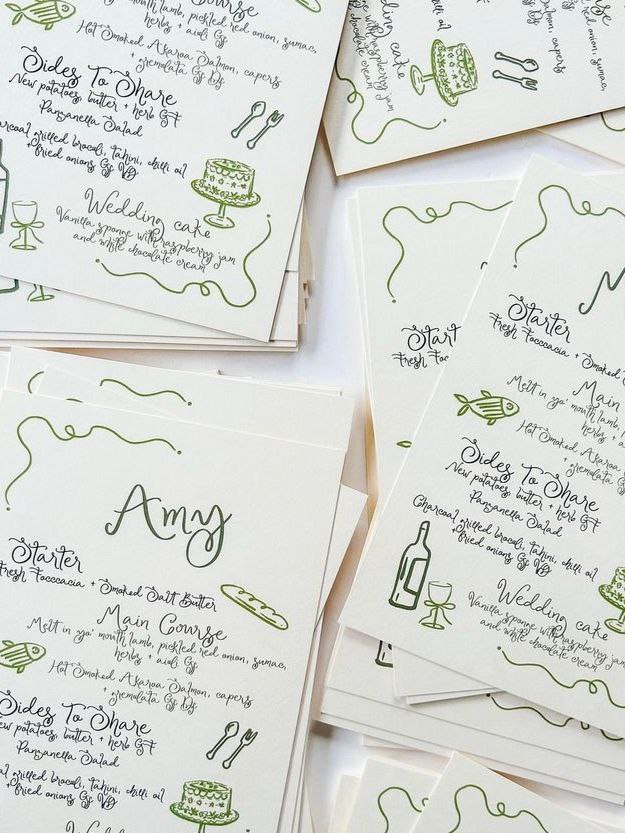 Course
Melt in yo' mouth lamb, pickled red onion, sumac,
herbs + aioli Gf
Hot Smoked Akaroa Salmon, capers
+ gremulata Gf Df
Sides To Share
New potatoes, butter + herb GF
Panzanella Salad
Charcoal grilled brocoli, tahini, chilli oil
+ fried onions Gf Vg
Wedding cake
Vanilla sponge with raspberry jam
and white chocolate cream
Wedding cake
Vanilla sponge with raspberry jam
and white chocolate cream
red onion, sumac,
capers
Start
Fresh Focc
Starter
Fresh Foccacia + Smoked S
Main
Melt in yo' mouth lamb,
herbs +
Hot Smoked Akaroa
+ gremulata
Sides To Share
New potatoes, butter + herb GF
Panzanella Salad
Charcoal grilled brocoli, tahini, chilli oil
+ fried onions Gf Vg
Wedding cake
Vanilla sponge with raspberry jam
and white chocolate cream
Amy
Starter
Fresh Foccacia + Smoked Salt Butter
Main Course
Melt in yo' mouth lamb, pickled red onion, sumac,
herbs + aioli Gf
Hot Smoked Akaroa Salmon, capers
+ gremulata Gf Df
Sides To Share
New potatoes, butter + herb GF
Panzanella Salad
grilled brocoli, tahini, chilli oil
+ fried onions Gf Vg
Wedding